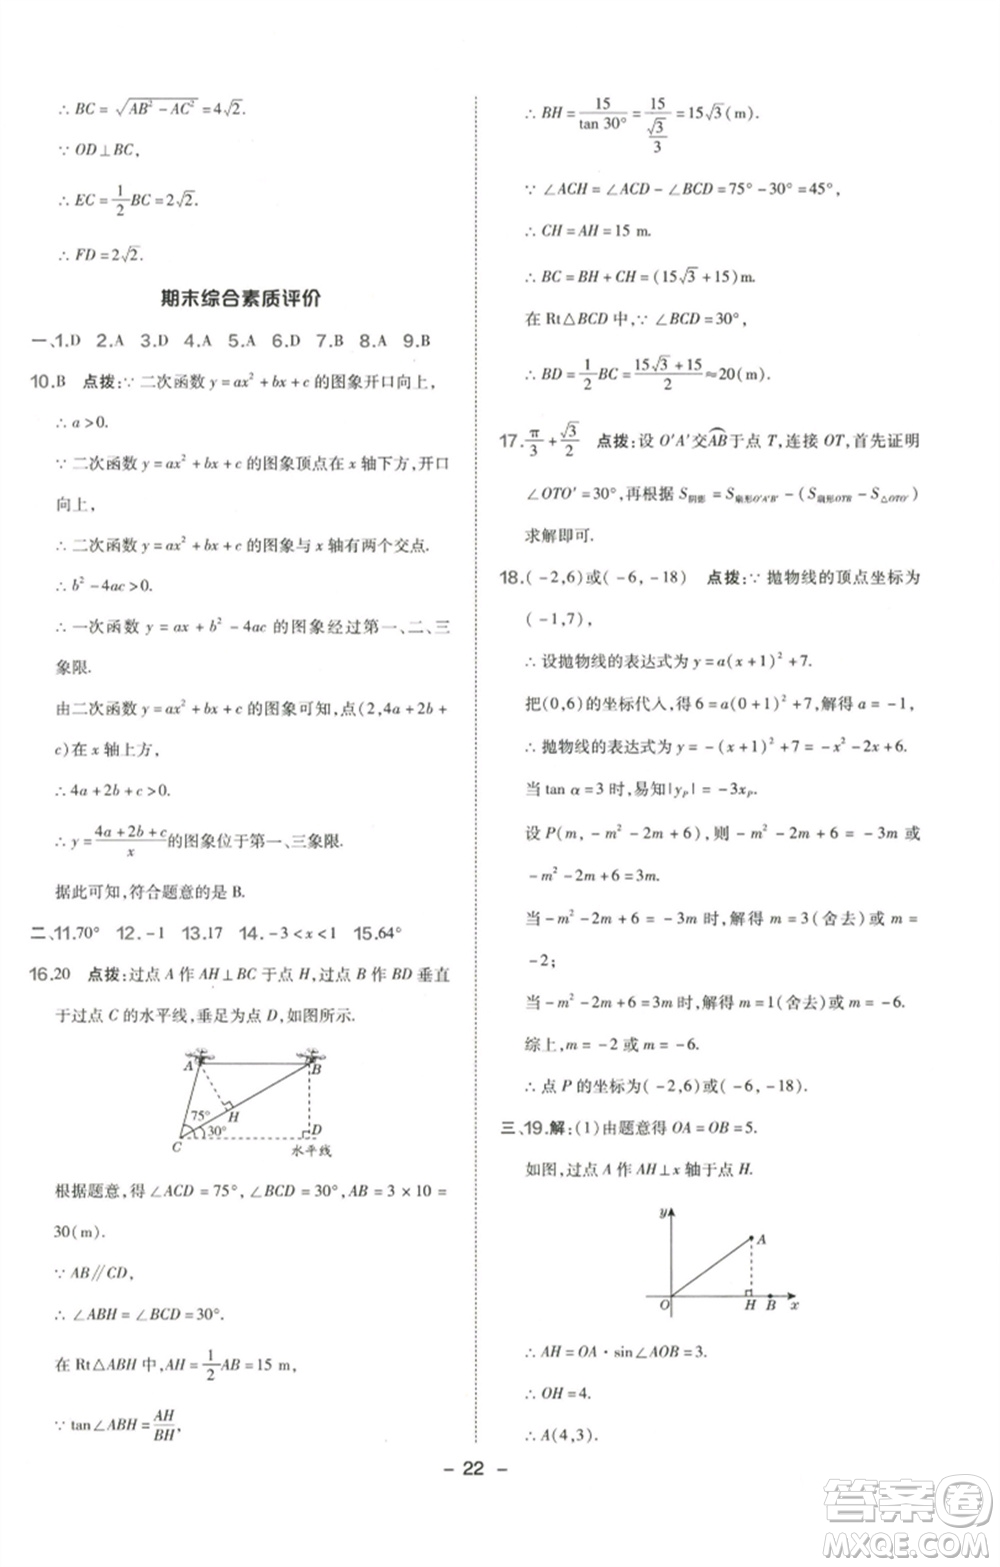 ∴ BC = √(AB² − AC²) = 4√2.
∵ OD⊥BC,
∴ EC = 1/2 BC = 2√2.
∴ FD = 2√2.
期末综合素质评价
一、1.D 2.A 3.D 4.A 5.A 6.B 7.B 8.A 9.B
10.B 点拨:∵ 二次函数 y = ax² + bx + c 的图象开口向上,
∴ a > 0.
∵ 二次函数 y = ax² + bx + c 的图象顶点在 x 轴下方,开口
向上,
∴ 二次函数 y = ax² + bx + c 的图象与 x 轴有两个交点.
∴ b² − 4ac > 0.
∴ 一次函数 y = ax + b² − 4ac 的图象经过第一、二、三
象限.
由二次函数 y = ax² + bx + c 的图象可知,点(2,4a + 2b +
c)在 x 轴上方,
∴ 4a + 2b + c > 0.
∴ y = (4a + 2b + c)/x 的图象位于第一、三象限.
据此可知,符合题意的是 B.
二、11.70° 12. −1 13.17 14. −3 < x < 1 15.64°
16.20 点拨:过点 A 作 AH⊥BC 于点 H,过点 B 作 BD 垂直
于过点 C 的水平线,垂足为点 D,如图所示.
A B
75° H
30° D
C 水平线
根据题意,得 ∠ACD = 75°, ∠BCD = 30°, AB = 3 × 10 =
30(m).
∵ AB∥CD,
∴ ∠ABH = ∠BCD = 30°.
在 Rt△ABH 中,AH = 1/2 AB = 15 m,
∵ tan∠ABH = AH/BH,
∴ BH = 15/tan 30° = 15/(√3/3) = 15√3(m).
∵ ∠ACH = ∠ACD − ∠BCD = 75° − 30° = 45°,
∴ CH = AH = 15 m.
∴ BC = BH + CH = (15√3 + 15)m.
在 Rt△BCD 中,∵ ∠BCD = 30°,
∴ BD = 1/2 BC = (15√3 + 15)/2 ≈ 20(m).
17. π/3 + √3/2 点拨:设 O′A′交A͡B于点 T,连接 OT,首先证明
∠OTO′ = 30°,再根据 S阴影 = S扇形O′A′B′ − (S扇形OTB − S△OTO′)
求解即可.
18.( −2,6)或( −6, −18) 点拨:∵ 抛物线的顶点坐标为
( −1,7),
∴ 设抛物线的表达式为 y = a(x + 1)² + 7.
把(0,6)的坐标代入,得 6 = a(0 + 1)² + 7,解得 a = −1,
∴ 抛物线的表达式为 y = −(x + 1)² + 7 = −x² − 2x + 6.
当 tan α = 3 时,易知|yP| = −3xP.
设 P(m, −m² − 2m + 6),则 −m² − 2m + 6 = −3m 或
−m² − 2m + 6 = 3m.
当 −m² − 2m + 6 = −3m 时,解得 m = 3(舍去)或 m =
−2;
当 −m² − 2m + 6 = 3m 时,解得 m = 1(舍去)或 m = −6.
综上,m = −2 或 m = −6.
∴ 点 P 的坐标为( −2,6)或( −6, −18).
三、19.解:(1)由题意得 OA = OB = 5.
如图,过点 A 作 AH⊥x 轴于点 H.
y
A
O H B x
∴ AH = OA · sin∠AOB = 3.
∴ OH = 4.
∴ A(4,3).
- 22 -
答案圈
MXQE.COM